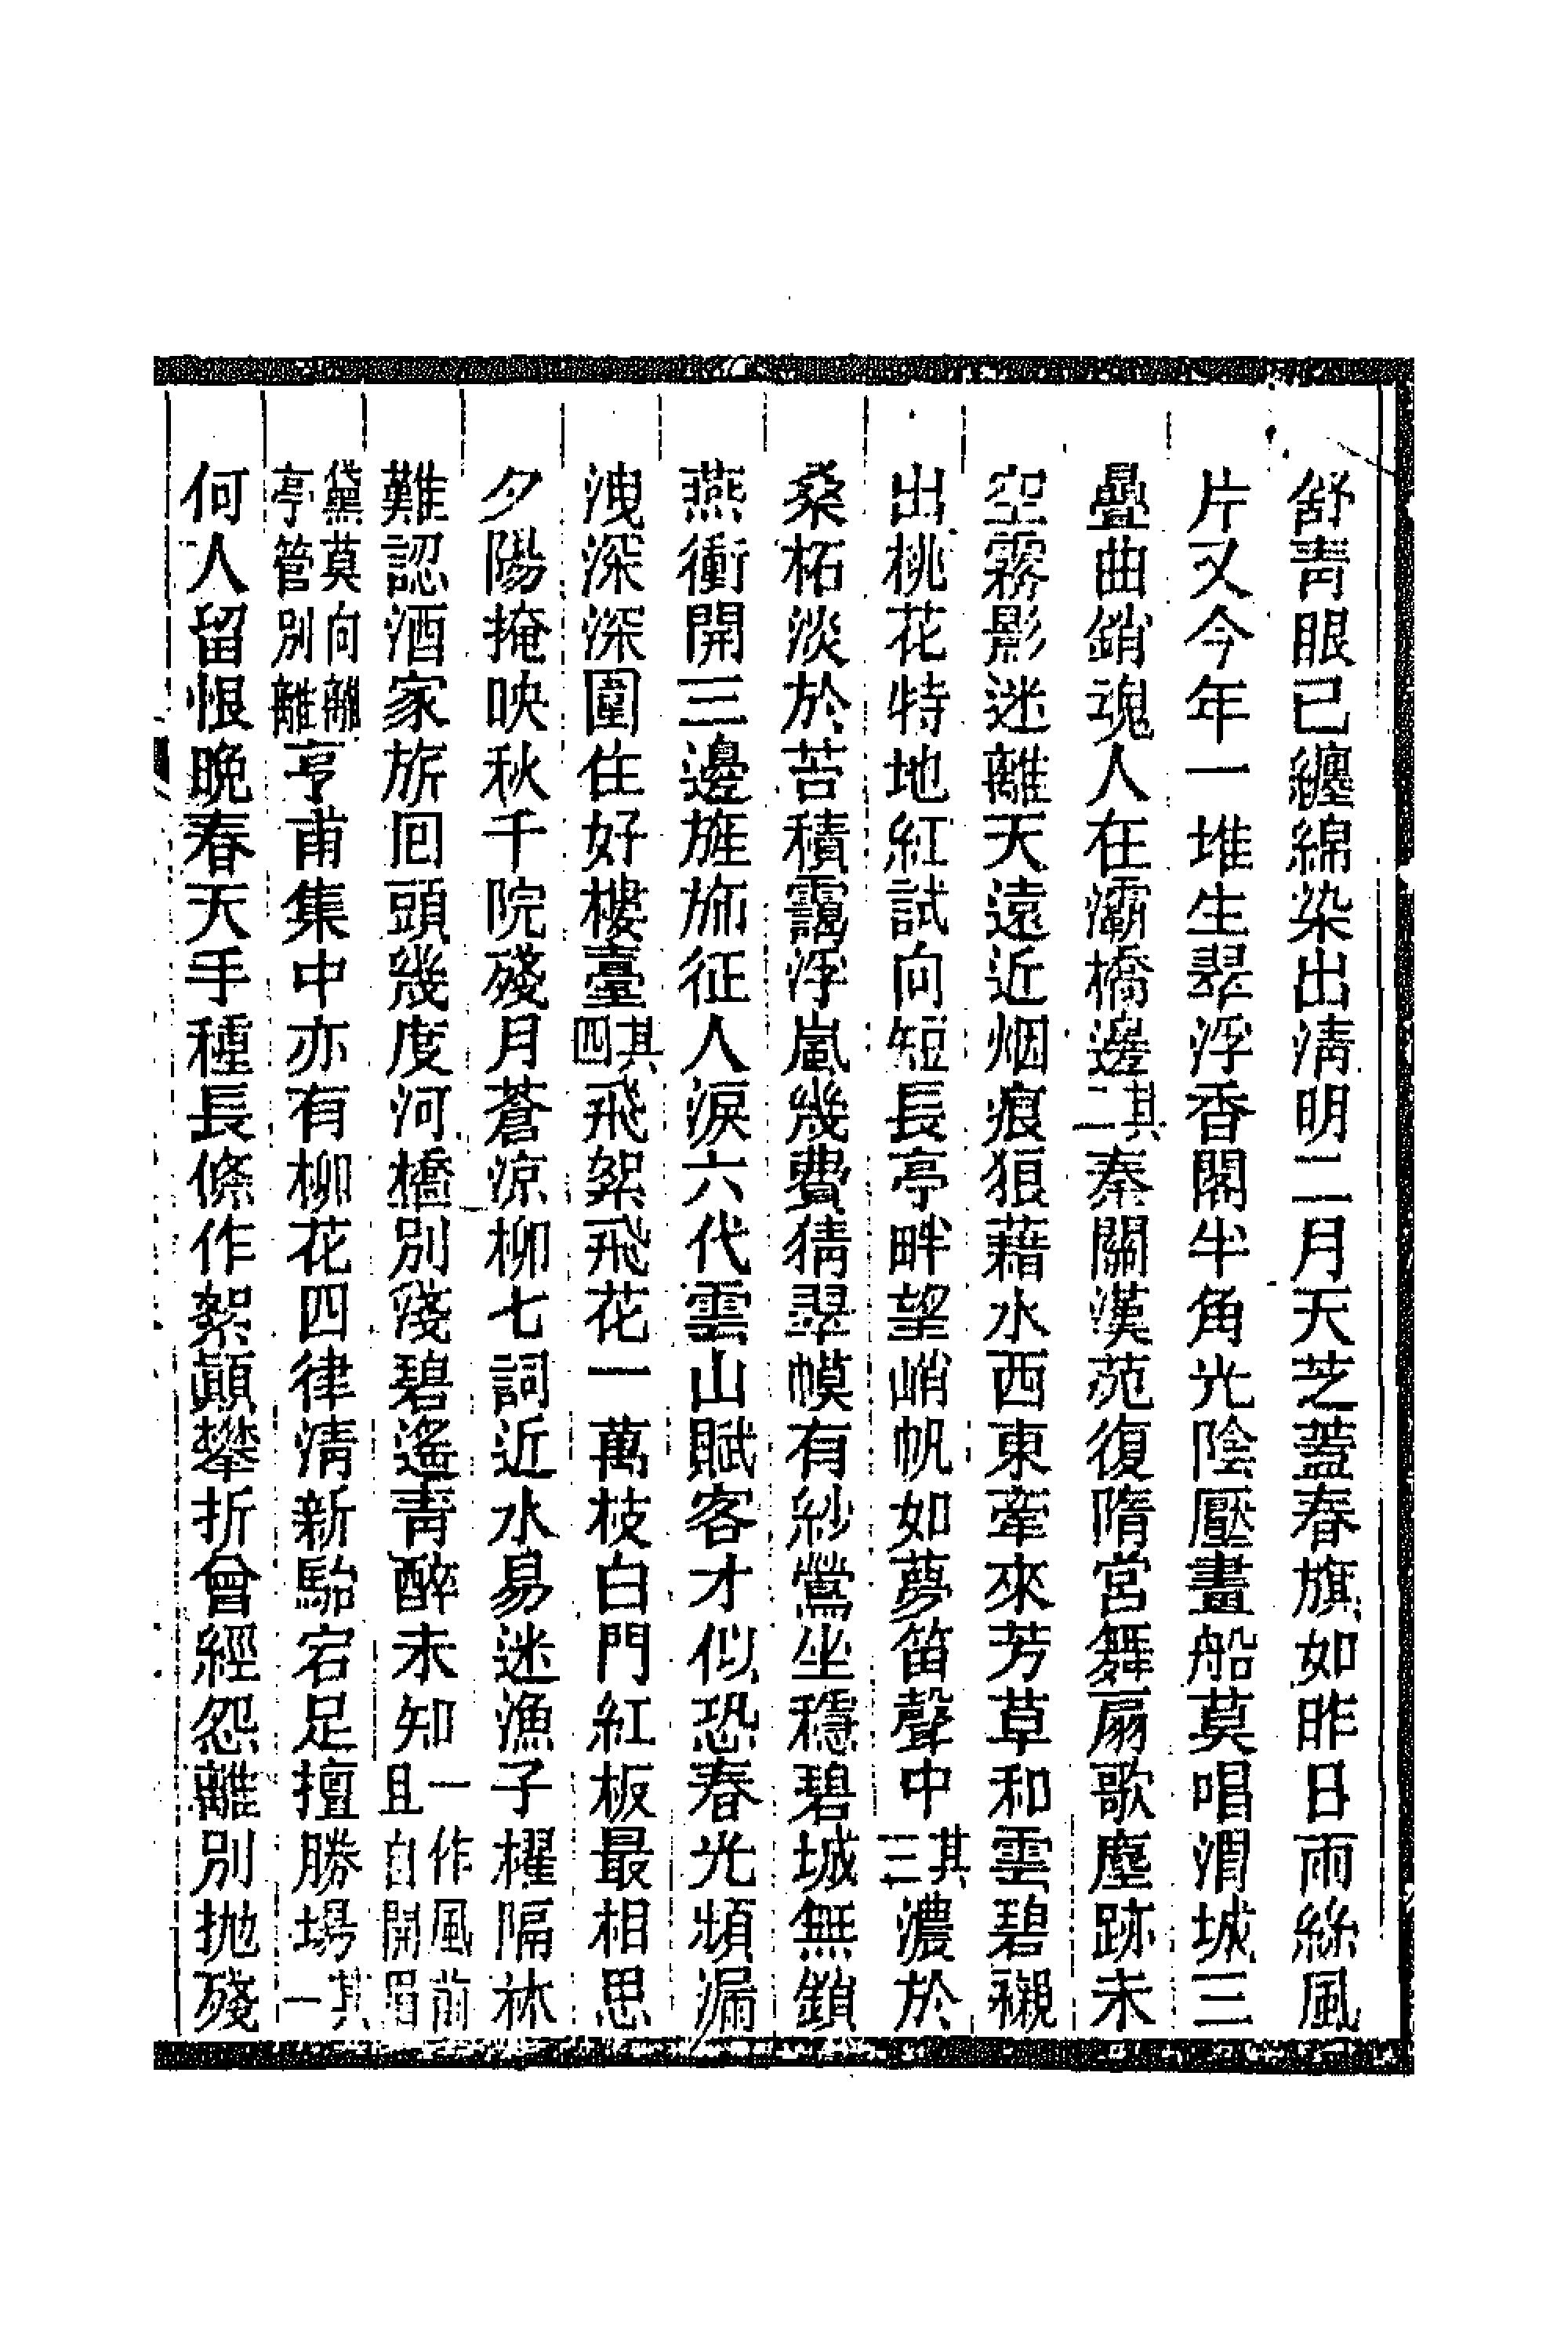 舒青眼已纏綿染出清明二月天芝蓋春旗如昨日雨絲風
片又今年一堆生翠浮香閣半角光陰壓畫船莫唱渭城三
疊曲銷魂人在灞橋邊其二秦關漢苑復隋宮舞扇歌塵跡未
空霧影迷離天遠近烟痕狼藉水西東牽來芳草和雲碧襯
出桃花特地紅試向短長亭畔望峭帆如夢笛聲中其三濃於
桑柘淡於苔積靄浮嵐幾費猜翠幙有紗鶯坐穩碧城無鎖
燕衝開三邊旌斾征人淚六代雲山賦客才似恐春光頻漏
洩深深圍住好樓臺其四飛絮飛花一萬枝白門紅板最相思
夕陽掩映秋千院殘月蒼涼柳七詞近水易迷漁子櫂隔林
難認酒家旂回頭幾度河橋別淺碧遙青醉未知一作風前且自開眉
黛莫向離亭管別離亨甫集中亦有柳花四律清新駘宕足擅勝場其一
何人留恨晚春天手種長條作絮顚攀折曾經怨離別拋殘